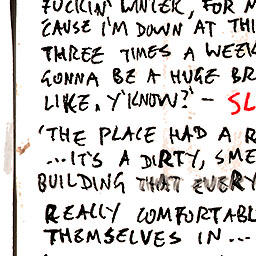 FUCKIN' WRITER, FOR M
'CAUSE I'M DOWN AT THI
THREE TIMES A WEEK
GONNA BE A HUGE BR
LIKE, Y'KNOW?' - SL
'THE PLACE HAD A R
...IT'S A DIRTY, SME
BUILDING THAT EVERY
REALLY COMFORTABL
THEMSELVES IN...